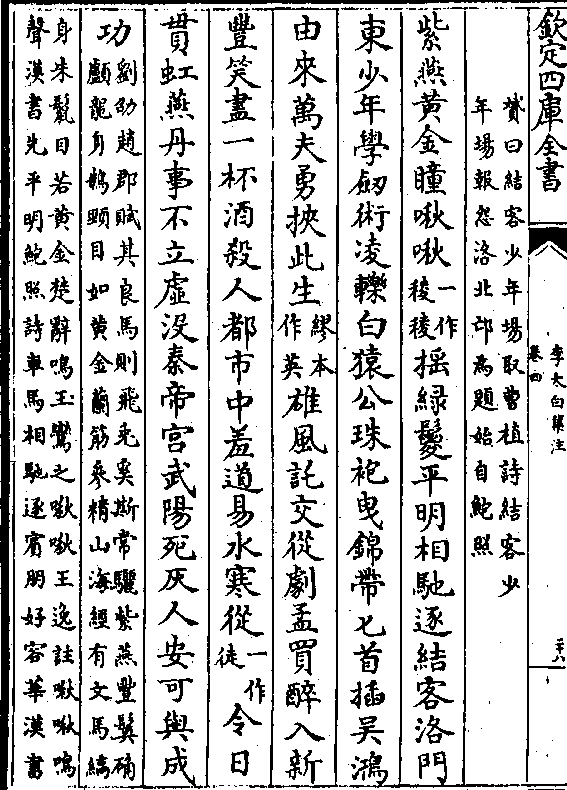 欽定四庫全書
李太白集注
卷四
二十八
贊曰結客少年場取曹植詩結客少
年場報怨洛北邙為題始自鮑照
紫燕黃金瞳啾啾一作稜稜揺緑鬉平明相馳逐結客洛門
東少年學劒術凌轢白猿公珠袍曳錦帶匕首插吳鴻
由來萬夫勇挾此生繆本作英雄風託交從劇孟買醉入新
豐笑盡一杯酒殺人都市中羞道易水寒從一作徒令日
貫虹燕丹事不立虛沒秦帝宮武陽死灰人安可與成
功劉劭趙郡賦其良馬則飛兎奚斯常驪紫燕豐鬉确
顱龍身鵠頸目如黃金蘭筋參精山海經有文馬縞
身朱鬛目若黃金楚辭鳴玉鸞之啾啾王逸註啾啾鳴
聲漢書先平明鮑照詩車馬相馳逐賓朋好容華漢書